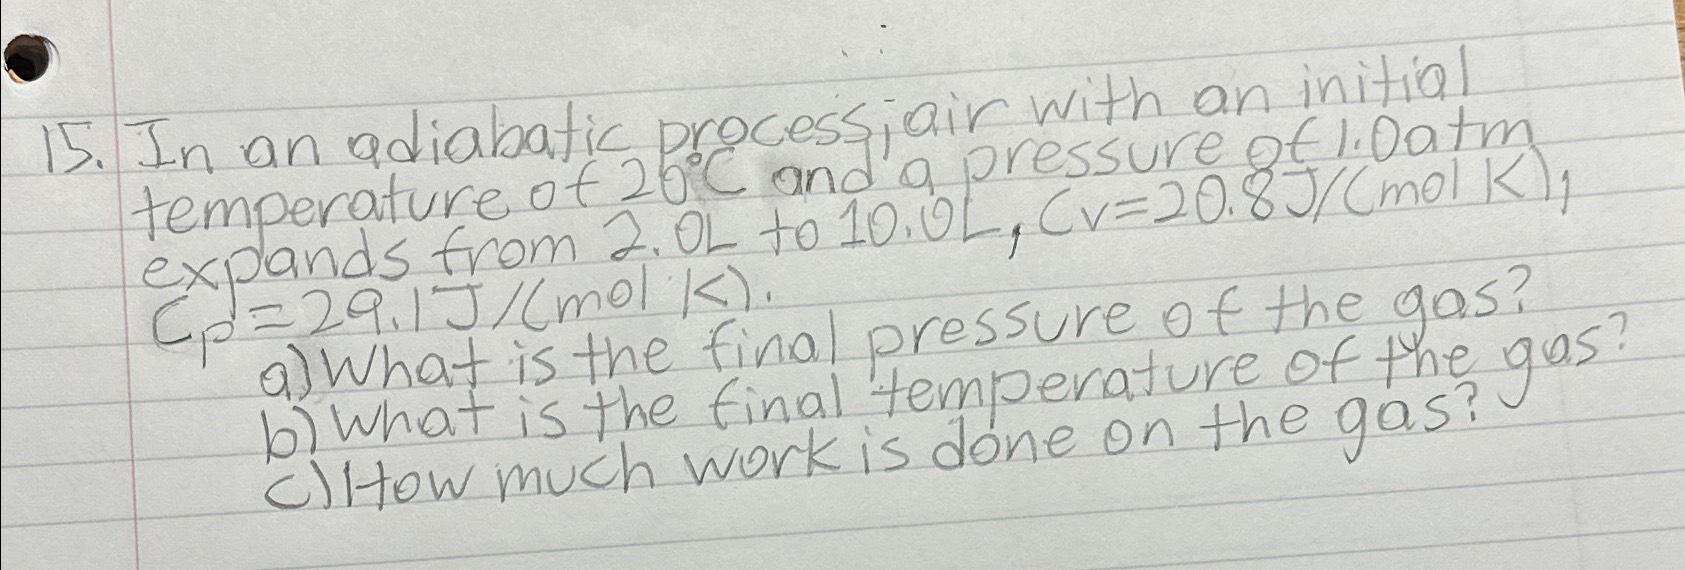 15. In an adiabatic process, air with an initial
temperature of 20°C and a pressure of 1.0atm
expands from 2.0L to 10.0L, Cv=20.8J/(mol K),
Cp=29.1J/(mol K).
a) What is the final pressure of the gas?
b) What is the final temperature of the gas?
c) How much work is done on the gas?